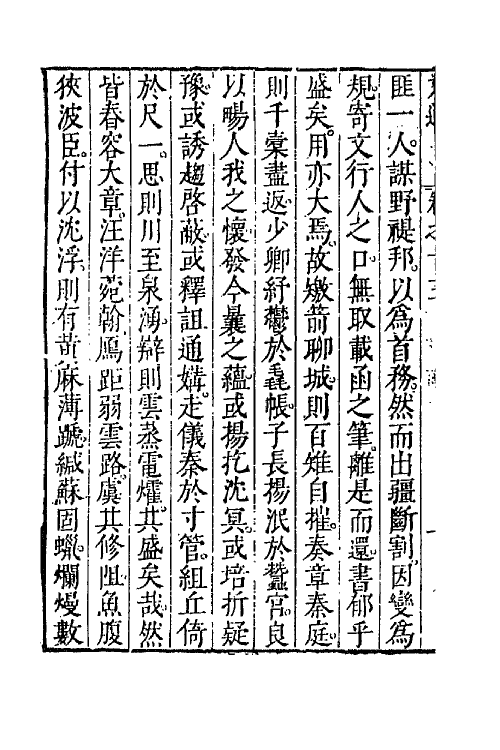 匪一人謀野禔邦以爲首務然而出疆斷割因變爲
規寄文行人之口無取載函之筆離是而還書郁乎
盛矣用亦大焉故繳箭聊城則百雉自摧奏章秦庭
則千橐盡返少卿紓欝於毳帳子長揚泯於蠶官良
以暢人我之懷發今曩之蘊或揚抗沈冥或培折疑
豫或誘趨啓蔽或釋詛通媾走儀秦於寸管組丘倚
於尺一思則川至泉湧辯則雲蒸電爠其盛矣哉然
皆春容大章汪洋菀翰鴈距弱雲路虞其修阻魚腹
狹波臣付以沈浮則有苛麻薄蹏緘蘇固蠟爛熳數